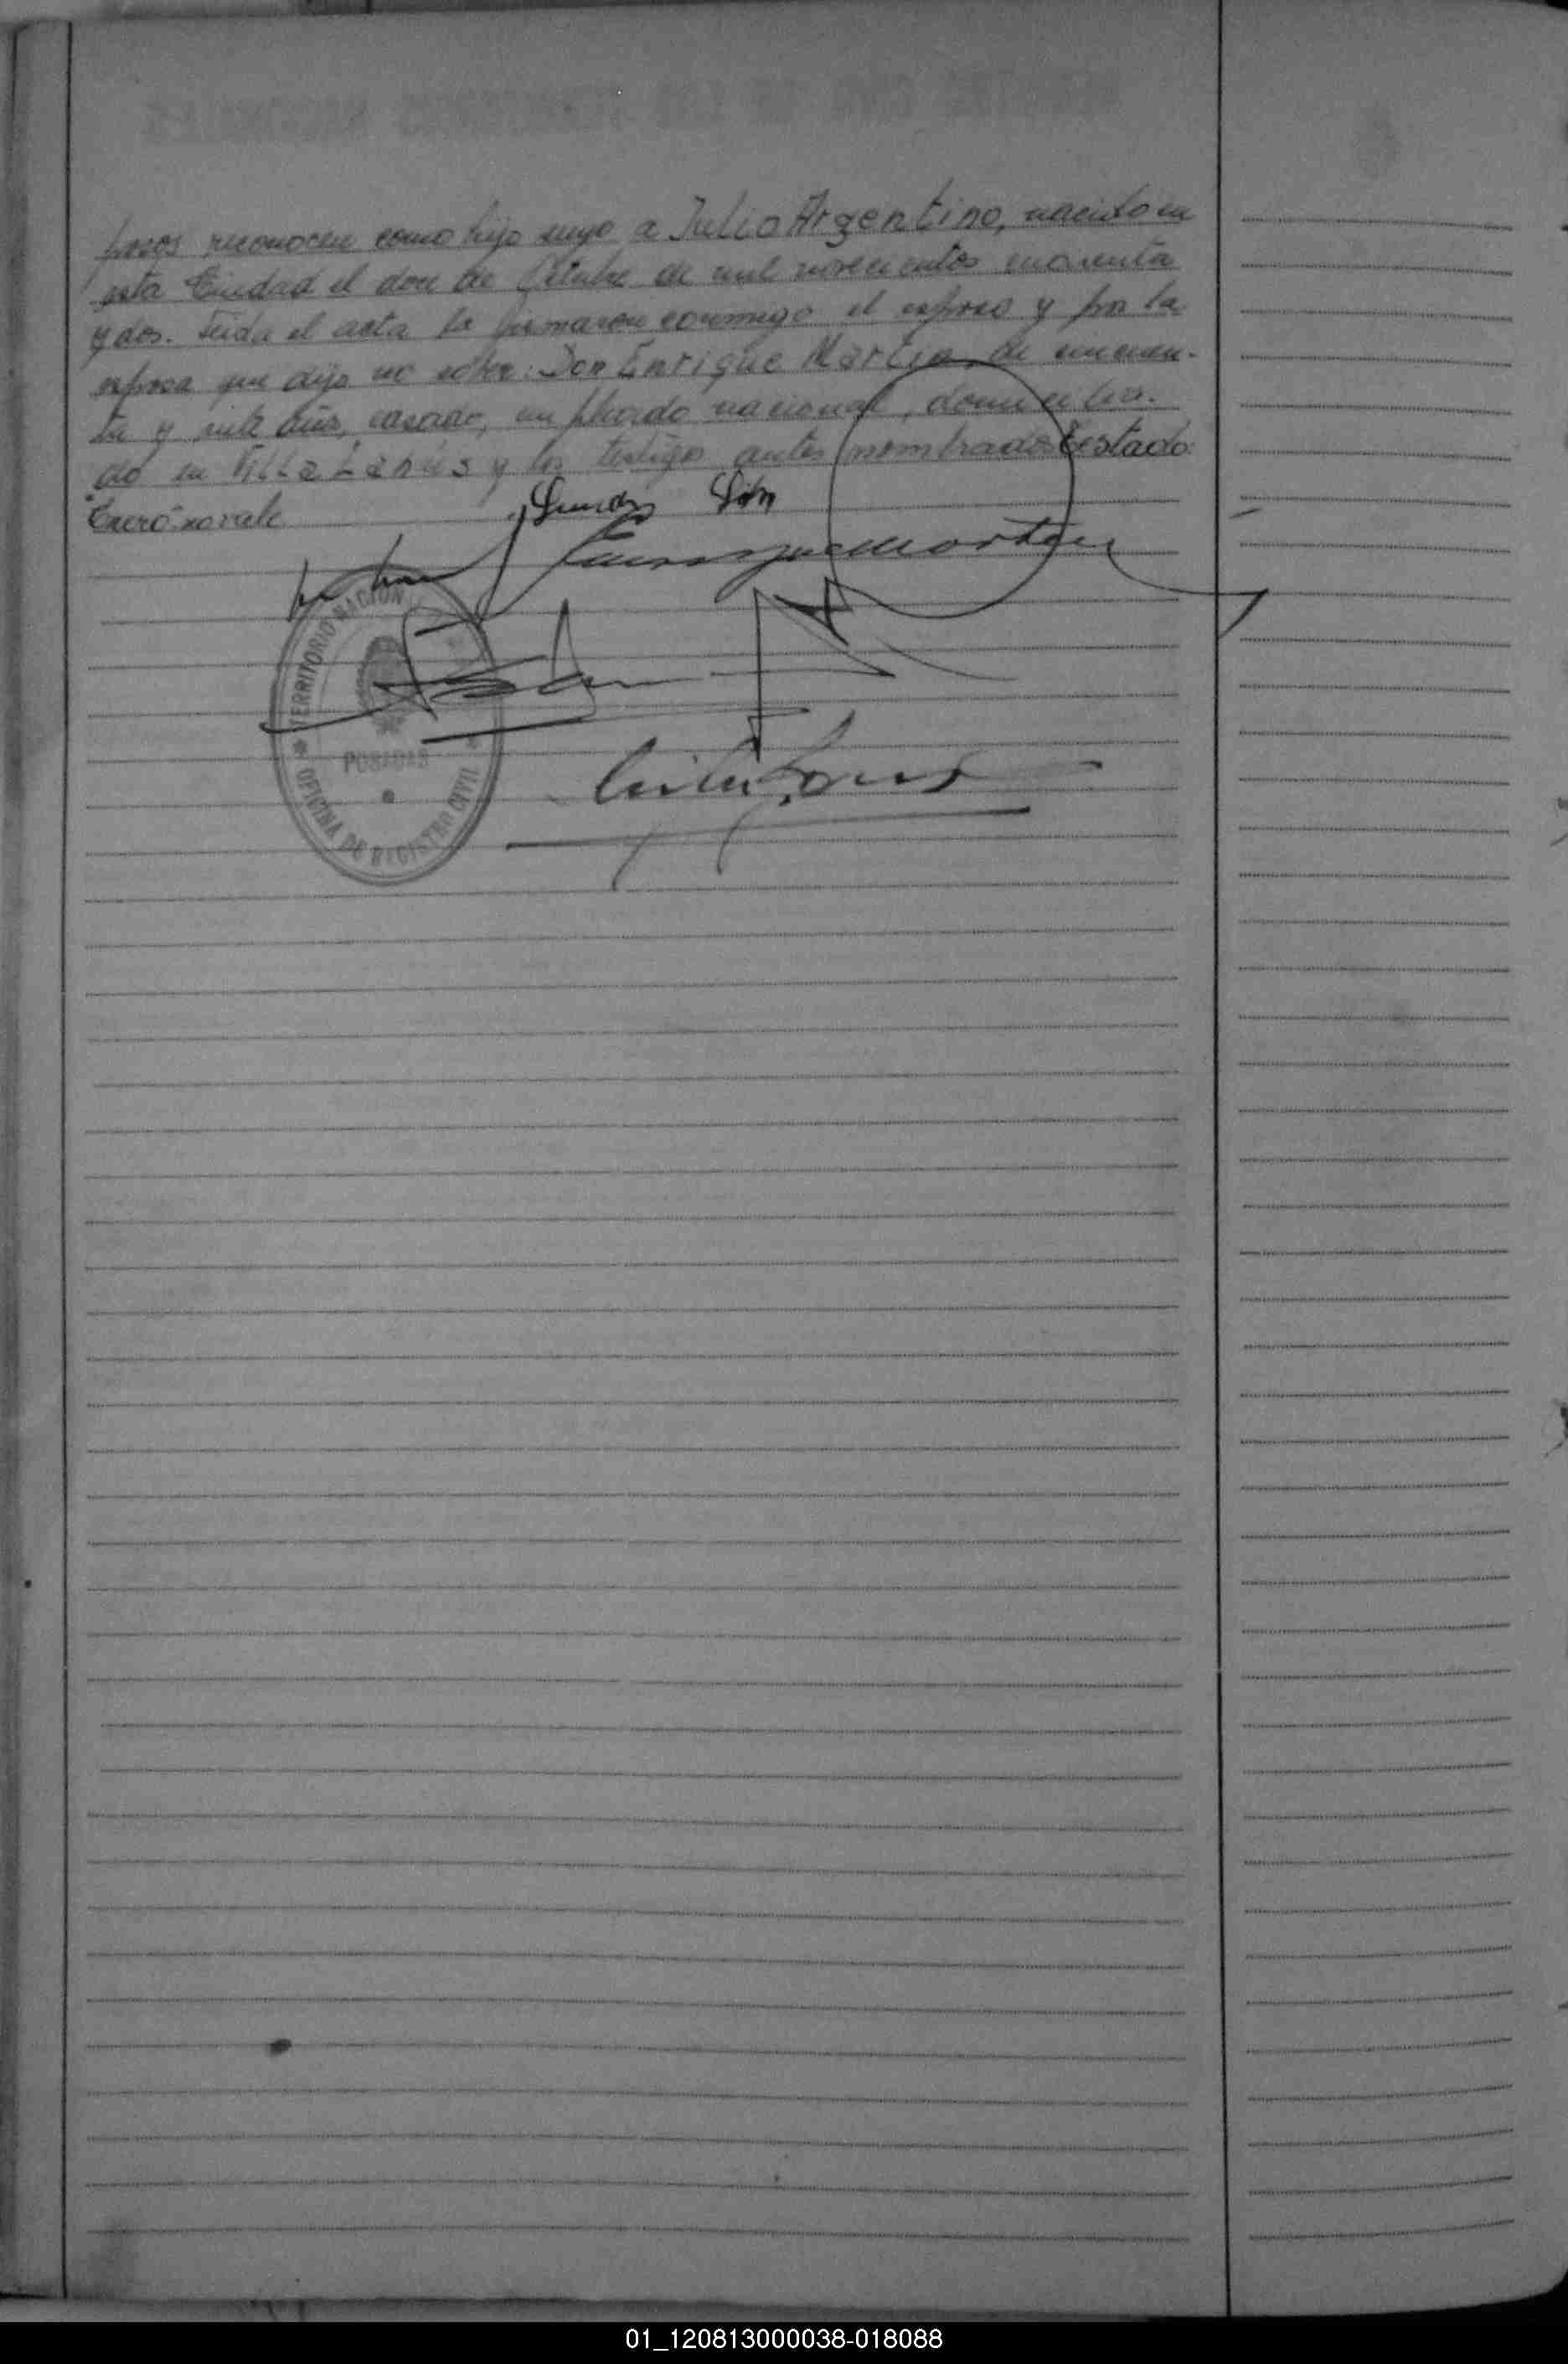 posos reconocen como hijo suyo a Julio Argentino, nacido en
esta Ciudad el doce de Octubre de mil novecientos cuarenta
y dos. Leida el acta la firmaron conmigo el esposo y por la
esposa que dijo no saber: Don Enrique Martin, de cincuen-
ta y siete años, casado, empleado nacional, domicilia-
do en Villa Lanús y los testigos antes nombrados Testado:
"Enero" no vale
TERRITORIO NACION
POSADAS
OFICINA DE REGISTRO CIVIL
01_120813000038-018088